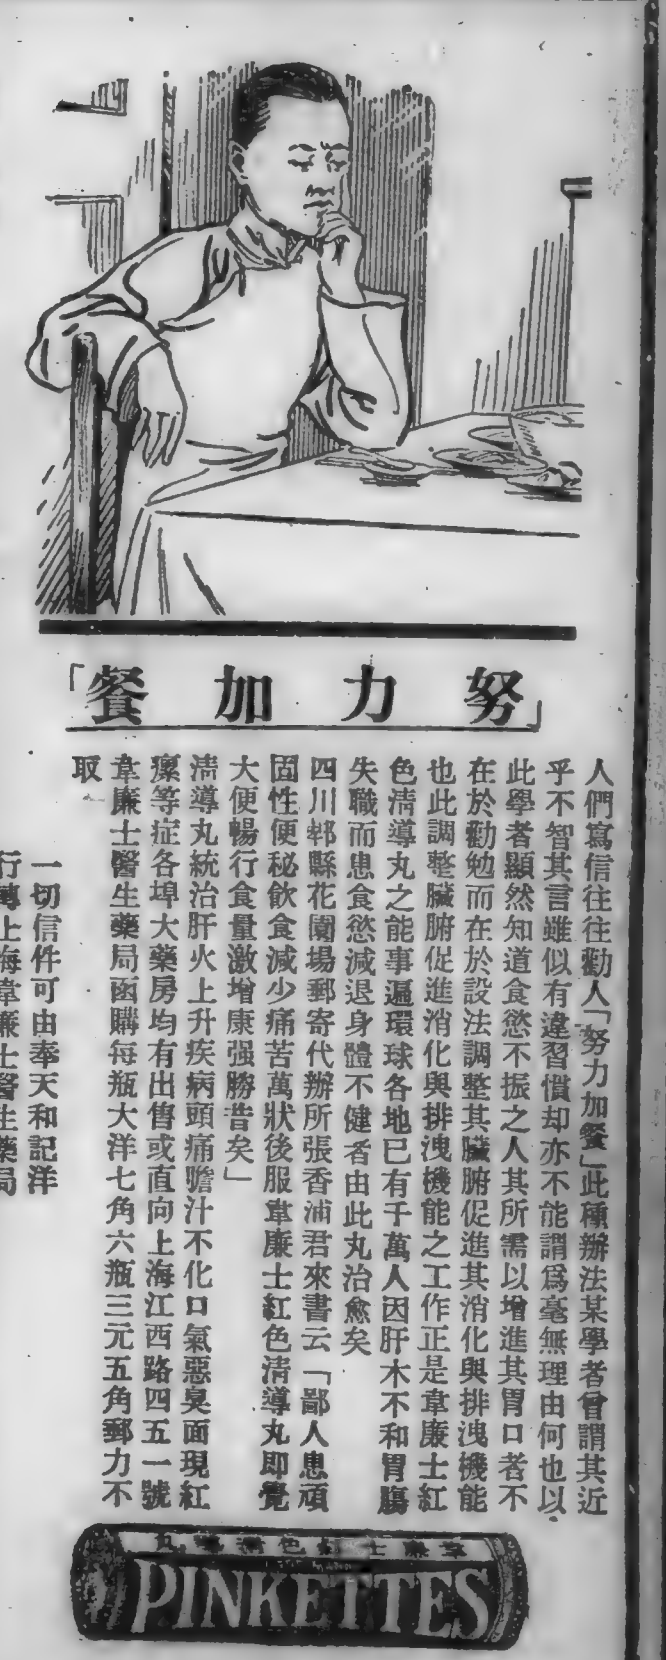 「努力加餐」
人們寫信往往勸人「努力加餐」此種辦法某學者曾謂其近
乎不智其言雖似有違習慣却亦不能謂爲毫無理由何也以
此學者顯然知道食慾不振之人其所需以增進其胃口者不
在於勸勉而在於設法調整其臟腑促進其消化與排洩機能
也此調整臟腑促進消化與排洩機能之工作正是韋廉士紅
色淸導丸之能事遍環球各地已有千萬人因肝木不和胃腸
失職而患食慾減退身體不健者由此丸治愈矣
四川郫縣花園場郵寄代辦所張香浦君來書云「鄙人患頑
固性便秘飲食減少痛苦萬狀後服韋廉士紅色淸導丸卽覺
大便暢行食量激增康强勝昔矣」
淸導丸統治肝火上升疾病頭痛膽汁不化口氣惡臭面現紅
瘰等症各埠大藥房均有出售或直向上海江西路四五一號
韋廉士醫生藥局函購每瓶大洋七角六瓶三元五角郵力不
取
一切信件可由奉天和記洋
行轉上海韋廉士醫生藥局
韋廉士紅色淸導丸
PINKETTES